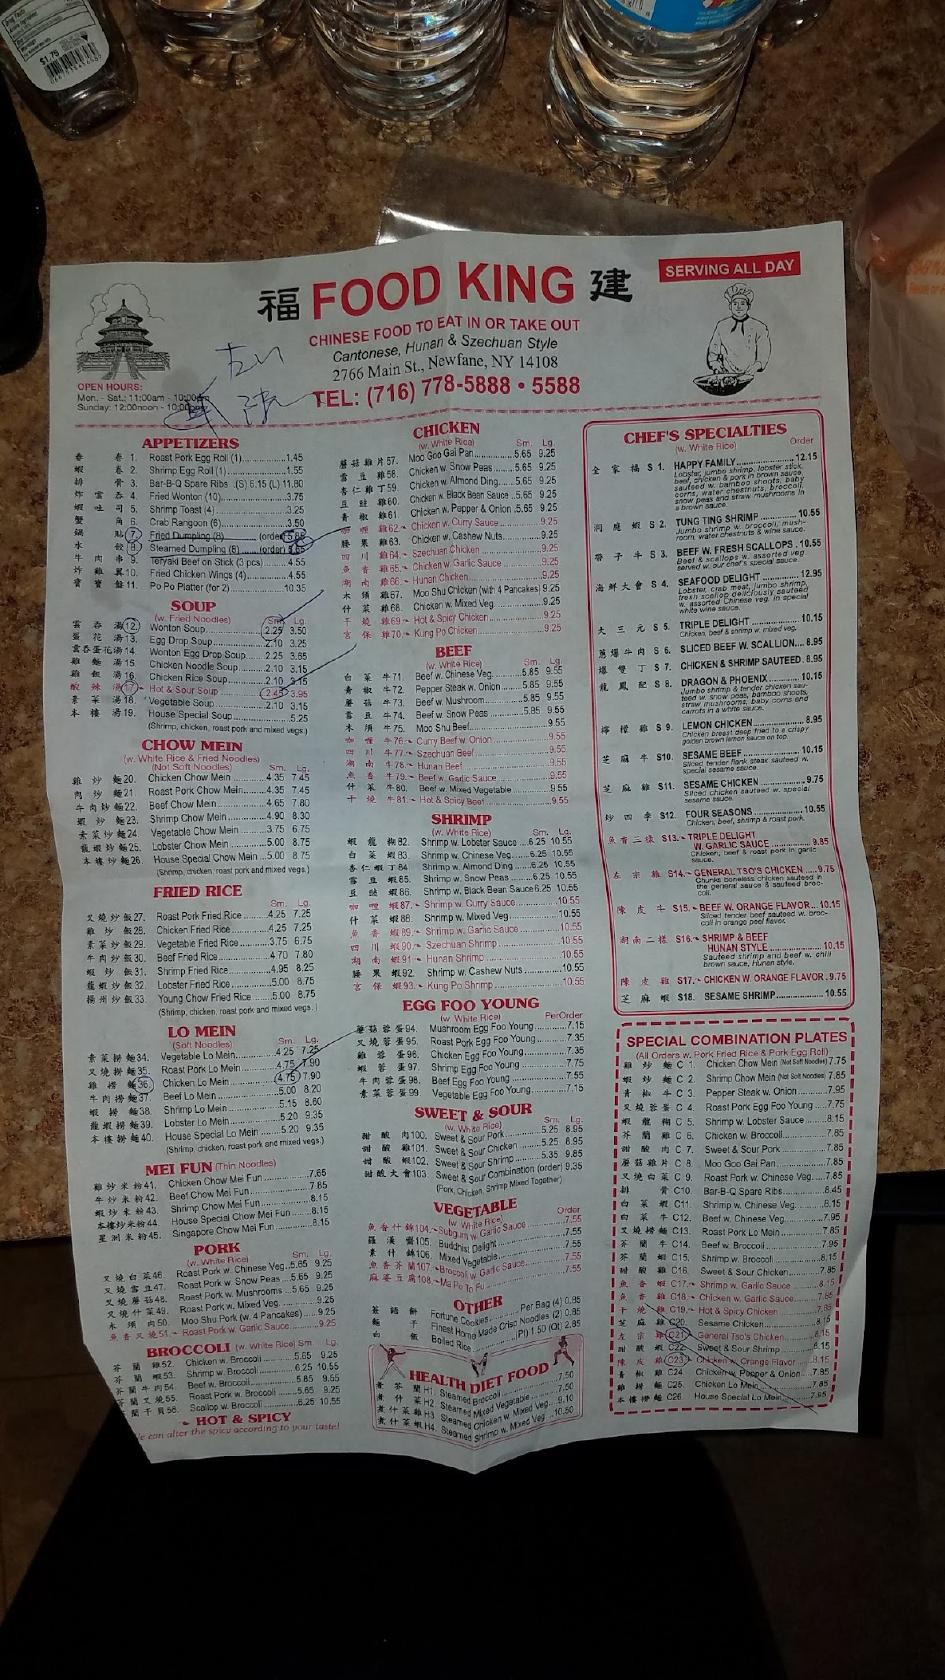 $1.75
福 FOOD KING 建
SERVING ALL DAY
CHINESE FOOD TO EAT IN OR TAKE OUT
Cantonese, Hunan & Szechuan Style
2766 Main St., Newfane, NY 14108
TEL: (716) 778-5888 • 5588
OPEN HOURS:
Mon. - Sat.: 11:00am - 10:00pm
Sunday: 12:00noon - 10:00pm
APPETIZERS
春 卷 1. Roast Pork Egg Roll (1) 1.45
蝦 卷 2. Shrimp Egg Roll (1) 1.55
排 骨 3. Bar-B-Q Spare Ribs .(S) 6.15 (L) 11.80
炸 雲 吞 4. Fried Wonton (10) 3.75
蝦 吐 司 5. Shrimp Toast (4) 3.25
蟹 角 6. Crab Rangoon (6) 3.50
鍋 貼 7. Fried Dumpling (8) (order)
水 餃 8. Steamed Dumpling (8) (order)
牛 肉 串 9. Teriyaki Beef on Stick (3 pcs) 4.55
炸 雞 翼 10. Fried Chicken Wings (4) 4.55
寶 寶 盤 11. Po Po Platter (for 2) 10.35
SOUP
(w. Fried Noodles)
Sm. Lg.
雲 吞 湯 12. Wonton Soup 2.25 3.50
蛋 花 湯 13. Egg Drop Soup 2.10 3.25
雲吞蛋花湯 14. Wonton Egg Drop Soup 2.25 3.65
雞 麵 湯 15. Chicken Noodle Soup 2.10 3.15
雞 飯 湯 16. Chicken Rice Soup 2.10 3.15
酸 辣 湯 17. Hot & Sour Soup 2.45 3.95
素 菜 湯 18. Vegetable Soup 2.10 3.15
本 樓 湯 19. House Special Soup 5.25
(Shrimp, chicken, roast pork and mixed vegs.)
CHOW MEIN
(w. White Rice & Fried Noodles)
(Not Soft Noodles)
Sm. Lg.
雞 炒 麵 20. Chicken Chow Mein 4.35 7.45
肉 炒 麵 21. Roast Pork Chow Mein 4.35 7.45
牛肉炒麵 22. Beef Chow Mein 4.65 7.80
蝦 炒 麵 23. Shrimp Chow Mein 4.90 8.30
素菜炒麵 24. Vegetable Chow Mein 3.75 6.75
龍蝦炒麵 25. Lobster Chow Mein 5.00 8.75
本樓炒麵 26. House Special Chow Mein 5.00 8.75
(Shrimp, chicken, roast pork and mixed vegs.)
FRIED RICE
Sm. Lg.
叉燒炒飯 27. Roast Pork Fried Rice 4.25 7.25
雞 炒 飯 28. Chicken Fried Rice 4.25 7.25
素菜炒飯 29. Vegetable Fried Rice 3.75 6.75
牛肉炒飯 30. Beef Fried Rice 4.70 7.80
蝦 炒 飯 31. Shrimp Fried Rice 4.95 8.25
龍蝦炒飯 32. Lobster Fried Rice 5.00 8.75
揚州炒飯 33. Young Chow Fried Rice 5.00 8.75
(Shrimp, chicken, roast pork and mixed vegs.)
LO MEIN
(Soft Noodles)
Sm. Lg.
素菜撈麵 34. Vegetable Lo Mein 4.25 7.25
叉燒撈麵 35. Roast Pork Lo Mein 4.75 7.90
雞 撈 麵 36. Chicken Lo Mein 4.75 7.90
牛肉撈麵 37. Beef Lo Mein 5.00 8.20
蝦 撈 麵 38. Shrimp Lo Mein 5.15 8.60
龍蝦撈麵 39. Lobster Lo Mein 5.20 9.35
本樓撈麵 40. House Special Lo Mein 5.20 9.35
(Shrimp, chicken, roast pork and mixed vegs.)
MEI FUN (Thin Noodles)
雞炒米粉 41. Chicken Chow Mei Fun 7.85
牛炒米粉 42. Beef Chow Mei Fun 7.85
蝦炒米粉 43. Shrimp Chow Mei Fun 8.15
本樓炒米粉 44. House Special Chow Mei Fun 8.15
星洲米粉 45. Singapore Chow Mei Fun 8.15
PORK
(w. White Rice)
Sm. Lg.
叉燒白菜 46. Roast Pork w. Chinese Veg. 5.65 9.25
叉燒雪豆 47. Roast Pork w. Snow Peas 5.65 9.25
叉燒蘑菇 48. Roast Pork w. Mushrooms 5.65 9.25
叉燒什菜 49. Roast Pork w. Mixed Veg. 9.25
木 須 肉 50. Moo Shu Pork (w. 4 Pancakes) 9.25
魚香叉燒 51. Roast Pork w. Garlic Sauce 9.25
BROCCOLI (w. White Rice) Sm. Lg.
芥 蘭 雞 52. Chicken w. Broccoli 5.65 9.25
芥 蘭 蝦 53. Shrimp w. Broccoli 6.25 10.55
芥蘭牛肉 54. Beef w. Broccoli 5.85 9.55
芥蘭叉燒 55. Roast Pork w. Broccoli 5.65 9.25
芥蘭干貝 56. Scallop w. Broccoli 6.25 10.55
HOT & SPICY
We can alter the spicy according to your taste!
CHICKEN
(w. White Rice)
Sm. Lg.
蘑菇雞片 57. Moo Goo Gai Pan 5.65 9.25
雪 豆 雞 58. Chicken w. Snow Peas 5.65 9.25
杏仁雞丁 59. Chicken w. Almond Ding 5.65 9.25
豆 豉 雞 60. Chicken w. Black Bean Sauce 5.65 9.25
青 椒 雞 61. Chicken w. Pepper & Onion 5.65 9.25
咖 喱 雞 62. Chicken w. Curry Sauce 9.25
腰 果 雞 63. Chicken w. Cashew Nuts 9.25
四 川 雞 64. Szechuan Chicken 9.25
魚 香 雞 65. Chicken w. Garlic Sauce 9.25
湖 南 雞 66. Hunan Chicken 9.25
木 須 雞 67. Moo Shu Chicken (with 4 Pancakes) 9.25
什 菜 雞 68. Chicken w. Mixed Veg 9.25
干 燒 雞 69. Hot & Spicy Chicken 9.25
宮 保 雞 70. Kung Po Chicken 9.25
BEEF
(w. White Rice)
Sm. Lg.
白 菜 牛 71. Beef w. Chinese Veg. 5.85 9.55
青 椒 牛 72. Pepper Steak w. Onion 5.85 9.55
蘑 菇 牛 73. Beef w. Mushroom 5.85 9.55
雪 豆 牛 74. Beef w. Snow Peas 5.85 9.55
木 須 牛 75. Moo Shu Beef 9.55
咖 喱 牛 76. Curry Beef w. Onion 9.55
四 川 牛 77. Szechuan Beef 9.55
湖 南 牛 78. Hunan Beef 9.55
魚 香 牛 79. Beef w. Garlic Sauce 9.55
什 菜 牛 80. Beef w. Mixed Vegetable 9.55
干 燒 牛 81. Hot & Spicy Beef 9.55
SHRIMP
(w. White Rice)
Sm. Lg.
蝦 龍 糊 82. Shrimp w. Lobster Sauce 6.25 10.55
白 菜 蝦 83. Shrimp w. Chinese Veg. 6.25 10.55
杏仁蝦丁 84. Shrimp w. Almond Ding 6.25 10.55
雪 豆 蝦 85. Shrimp w. Snow Peas 6.25 10.55
豆 豉 蝦 86. Shrimp w. Black Bean Sauce 6.25 10.55
咖 喱 蝦 87. Shrimp w. Curry Sauce 10.55
什 菜 蝦 88. Shrimp w. Mixed Veg 10.55
魚 香 蝦 89. Shrimp w. Garlic Sauce 10.55
四 川 蝦 90. Szechuan Shrimp 10.55
湖 南 蝦 91. Hunan Shrimp 10.55
腰 果 蝦 92. Shrimp w. Cashew Nuts 10.55
宮 保 蝦 93. Kung Po Shrimp 10.55
EGG FOO YOUNG
(w. White Rice)
Per Order
蘑菇蓉蛋 94. Mushroom Egg Foo Young 7.15
叉燒蓉蛋 95. Roast Pork Egg Foo Young 7.35
雞 蓉 蛋 96. Chicken Egg Foo Young 7.35
蝦 蓉 蛋 97. Shrimp Egg Foo Young 7.75
牛肉蓉蛋 98. Beef Egg Foo Young 7.55
素菜蓉蛋 99. Vegetable Egg Foo Young 7.15
SWEET & SOUR
(w. White Rice)
Sm. Lg.
甜 酸 肉 100. Sweet & Sour Pork 5.25 8.95
甜 酸 雞 101. Sweet & Sour Chicken 5.25 8.95
甜 酸 蝦 102. Sweet & Sour Shrimp 5.35 9.85
甜酸大會 103. Sweet & Sour Combination (order) 9.35
(Pork, Chicken, Shrimp Mixed Together)
VEGETABLE
(w. White Rice)
Order
魚香什錦 104. Subgum w. Garlic Sauce 7.55
羅 漢 齋 105. Buddhist Delight 7.55
素 什 錦 106. Mixed Vegetable 7.55
魚香芥蘭 107. Broccoli w. Garlic Sauce 7.55
麻婆豆腐 108. Ma Po To Fu 7.55
OTHER
簽 語 餅 Fortune Cookies Per Bag (4) 0.85
麵 干 Finest Home Made Crisp Noodles (2) 0.85
白 飯 Boiled Rice (Pt) 1.50 (Qt) 2.85
HEALTH DIET FOOD
素 芥 蘭 H1. Steamed Broccoli 7.50
素 什 菜 H2. Steamed Mixed Vegetable 7.50
素什菜雞 H3. Steamed Chicken w. Mixed Veg 9.10
素什菜蝦 H4. Steamed Shrimp w. Mixed Veg 10.50
CHEF'S SPECIALTIES
(w. White Rice)
Order
全 家 福 S 1. HAPPY FAMILY 12.15
Lobster, jumbo shrimp, lobster stick,
beef, chicken & pork in brown sauce,
sauteed w. bamboo shoots, baby
corns, water chestnuts, broccoli,
snow peas and straw mushrooms in
a brown sauce.
洞 庭 蝦 S 2. TUNG TING SHRIMP 10.55
Jumbo shrimp w. broccoli, mush-
room, water chestnuts & wine sauce.
帶 子 牛 S 3. BEEF W. FRESH SCALLOPS 10.55
Beef & scallops w. assorted veg
served w. our chef's special sauce.
海鮮大會 S 4. SEAFOOD DELIGHT 12.95
Lobster, crab meat, jumbo shrimp,
fresh scallop deliciously sauteed
w. assorted Chinese veg. in special
white wine sauce.
大 三 元 S 5. TRIPLE DELIGHT 10.15
Chicken, beef & shrimp w. mixed veg.
蔥爆牛肉 S 6. SLICED BEEF W. SCALLION 8.95
爆 雙 丁 S 7. CHICKEN & SHRIMP SAUTEED 8.95
龍 鳳 配 S 8. DRAGON & PHOENIX 10.15
Jumbo shrimp & tender chicken sau-
teed w. snow peas, bamboo shoots,
straw mushrooms, baby corns and
carrots in a white sauce.
檸 檬 雞 S 9. LEMON CHICKEN 8.95
Chicken breast deep fried to a crispy
golden brown lemon sauce on top.
芝 麻 牛 S10. SESAME BEEF 10.15
Sliced tender flank steak sauteed w.
special sesame sauce.
芝 麻 雞 S11. SESAME CHICKEN 9.75
Sliced chicken sauteed w. special
sesame sauce.
炒 四 季 S12. FOUR SEASONS 10.55
Chicken, beef, shrimp & roast pork.
魚香三樣 S13. TRIPLE DELIGHT
W. GARLIC SAUCE 9.85
Chicken, beef & roast pork in garlic
sauce.
左 宗 雞 S14. GENERAL TSO'S CHICKEN 9.75
Chunks boneless chicken sauteed in
the general sauce & sauteed broc-
coli.
陳 皮 牛 S15. BEEF W. ORANGE FLAVOR 10.15
Sliced tender beef sauteed w. broc-
coli in orange peel flavor.
湖南二樣 S16. SHRIMP & BEEF
HUNAN STYLE 10.15
Sauteed shrimp and beef w. chili
brown sauce, Hunan style.
陳 皮 雞 S17. CHICKEN W. ORANGE FLAVOR 9.75
芝 麻 蝦 S18. SESAME SHRIMP 10.55
SPECIAL COMBINATION PLATES
(All Orders w. Pork Fried Rice & Pork Egg Roll)
雞 炒 麵 C 1. Chicken Chow Mein (Not Soft Noodles) 7.75
蝦 炒 麵 C 2. Shrimp Chow Mein (Not Soft Noodles) 7.85
青 椒 牛 C 3. Pepper Steak w. Onion 7.95
叉燒蓉蛋 C 4. Roast Pork Egg Foo Young 7.75
蝦 龍 糊 C 5. Shrimp w. Lobster Sauce 8.15
芥 蘭 雞 C 6. Chicken w. Broccoli 7.85
甜 酸 肉 C 7. Sweet & Sour Pork 7.85
蘑菇雞片 C 8. Moo Goo Gai Pan 7.85
叉燒白菜 C 9. Roast Pork w. Chinese Veg. 7.85
排 骨 C10. Bar-B-Q Spare Ribs 8.45
白 菜 蝦 C11. Shrimp w. Chinese Veg. 8.15
白 菜 牛 C12. Beef w. Chinese Veg. 7.95
叉燒撈麵 C13. Roast Pork Lo Mein 7.85
芥 蘭 牛 C14. Beef w. Broccoli 7.95
芥 蘭 蝦 C15. Shrimp w. Broccoli 8.15
甜 酸 雞 C16. Sweet & Sour Chicken 7.85
魚 香 蝦 C17. Shrimp w. Garlic Sauce 8.15
魚 香 雞 C18. Chicken w. Garlic Sauce 7.85
干 燒 雞 C19. Hot & Spicy Chicken 7.85
芝 麻 雞 C20. Sesame Chicken 8.15
左 宗 雞 C21. General Tso's Chicken 8.15
甜 酸 蝦 C22. Sweet & Sour Shrimp 8.15
陳 皮 雞 C23. Chicken w. Orange Flavor 8.15
青 椒 雞 C24. Chicken w. Pepper & Onion 7.85
雞 撈 麵 C25. Chicken Lo Mein 7.85
本樓撈麵 C26. House Special Lo Mein 7.95